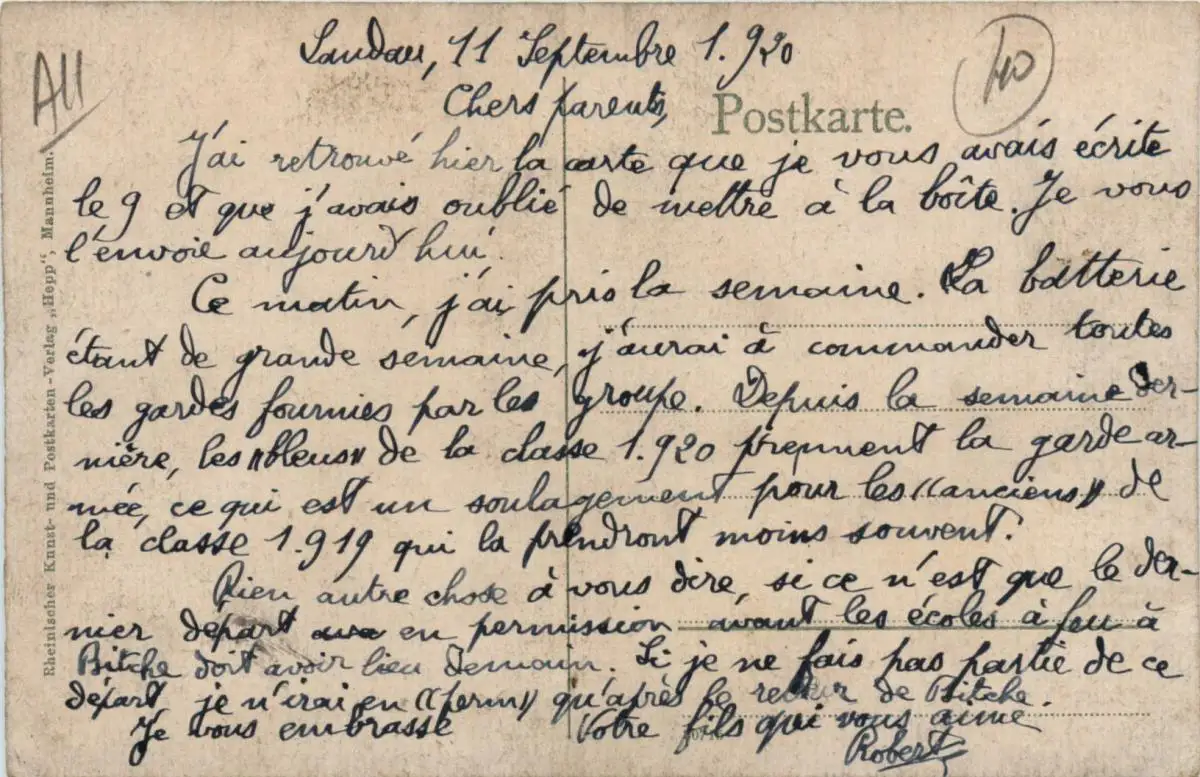 All
40
Landau, 11 Septembre 1.920
Chers parents,
Postkarte.
J'ai retrouvé hier la carte que je vous avais écrite
le 9 et que j'avais oublié de mettre à la boîte. Je vous
l'envoie aujourd'hui.
Ce matin, j'ai pris la semaine. La batterie
étant de grande semaine, j'aurai à commander toutes
les gardes fournies par les groupe. Depuis la semaine der-
nière, les "bleus" de la classe 1.920 prennent la garde ar-
mée, ce qui est un soulagement pour les ((anciens)) de
la classe 1.919 qui la prendront moins souvent.
Rien autre chose à vous dire, si ce n'est que le der-
nier départ en permission avant les écoles à feu à
Bitche doit avoir lieu demain. Si je ne fais pas partie de ce
départ, je n'irai en ((perm)) qu'après le retour de Bitche.
Je vous embrasse Votre fils qui vous aime
Robert
Rheinischer Kunst- und Postkarten-Verlag „Hepp", Mannheim.